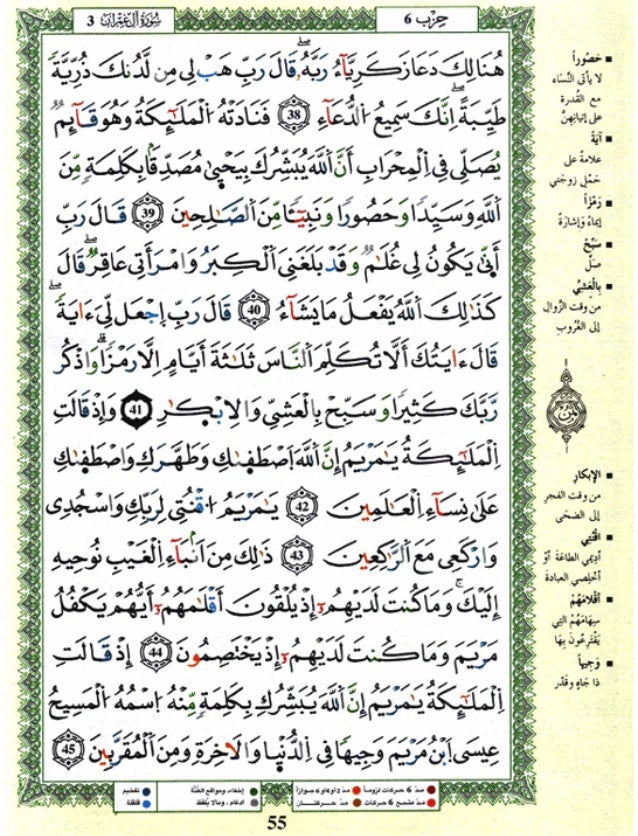 سُورَةُ آلِ عِمْرَانَ 3
حِزْب 6
هُنَالِكَ دَعَا زَكَرِيَّآءُ رَبَّهُۥ قَالَ رَبِّ هَبْ لِى مِن لَّدُنكَ ذُرِّيَّةٗ
طَيِّبَةً ۖ اِنَّكَ سَمِيعُ الدُّعَآءِ 38 فَنَادَتْهُ الْمَلَٰٓئِكَةُ وَهُوَ قَآئِمٌ
يُصَلِّى فِى اِلْمِحْرَابِ أَنَّ اَللَّهَ يُبَشِّرُكَ بِيَحْيَىٰ مُصَدِّقَاۢ بِكَلِمَةٖ مِّنَ
اَللَّهِ وَسَيِّدٗا وَحَصُورٗا وَنَبِيٓـٔٗا مِّنَ اَلصَّٰلِحِينَ 39 قَالَ رَبِّ
أَنَّىٰ يَكُونُ لِى غُلَٰمٌ وَقَدْ بَلَغَنِىَ اَلْكِبَرُ وَامْرَأَتِى عَاقِرٌ ۖ قَالَ
كَذَٰلِكَ اَللَّهُ يَفْعَلُ مَا يَشَآءُ 40 قَالَ رَبِّ اِجْعَل لِّىَ ءَايَةً ۖ
قَالَ ءَايَتُكَ أَلَّا تُكَلِّمَ اَلنَّاسَ ثَلَٰثَةَ أَيَّامٍ اِلَّا رَمْزٗا ۖ وَاذْكُر
رَّبَّكَ كَثِيرٗا وَسَبِّحْ بِالْعَشِىِّ وَالِابْكَٰرِ 41 وَإِذْ قَالَتِ
اِلْمَلَٰٓئِكَةُ يَٰمَرْيَمُ إِنَّ اَللَّهَ اَصْطَفَىٰكِ وَطَهَّرَكِ وَاصْطَفَىٰكِ
عَلَىٰ نِسَآءِ اِلْعَٰلَمِينَ 42 يَٰمَرْيَمُ اُقْنُتِى لِرَبِّكِ وَاسْجُدِى
وَارْكَعِى مَعَ اَلرَّٰكِعِينَ 43 ذَٰلِكَ مِنَ اَنۢبَآءِ اِلْغَيْبِ نُوحِيهِ
إِلَيْكَ ۖ وَمَا كُنتَ لَدَيْهِمُۥٓ إِذْ يُلْقُونَ أَقْلَٰمَهُمُۥٓ أَيُّهُمْ يَكْفُلُ
مَرْيَمَ وَمَا كُنتَ لَدَيْهِمُۥٓ إِذْ يَخْتَصِمُونَ 44 إِذْ قَالَتِ
اِلْمَلَٰٓئِكَةُ يَٰمَرْيَمُ إِنَّ اَللَّهَ يُبَشِّرُكِ بِكَلِمَةٖ مِّنْهُ اُسْمُهُ اُلْمَسِيحُ
عِيسَى اَبْنُ مَرْيَمَ وَجِيهٗا فِى اِلدُّنْيَا وَالَاخِرَةِ وَمِنَ اَلْمُقَرَّبِينَ 45
حَصُوراً
لا يأتي النِّسَاء
مع القُدرة
على إتيانِهِنّ
آيَةً
علامةً على
حَمْلِ زوجتي
رَمْزاً
إيماءً وإشارةً
سَبِّحْ
صَلِّ
بِالْعَشِيِّ
من وقت الزَّوال
إلى الغُروبِ
ثمن
الإبكارِ
من وقت الفجر
إلى الضحَى
اقْنُتِي
أدِيمي الطاعَة أوْ
أخْلِصِي العبادة
أقْلامَهُمْ
سِهَامَهُمْ التي
يَقْترِعُونَ بِهَا
وَجِيهاً
ذا جَاهٍ وقَدْرٍ
مدّ 6 حركات لزوماً
مدّ 2 أو 4 أو 6 جوازاً
إخفاء، ومواقع الغُنَّة
تفخيم
مدّ مشبع 6 حركات
مدّ حركتان
ادغام، وما لا يُلفظ
قلقلة
55